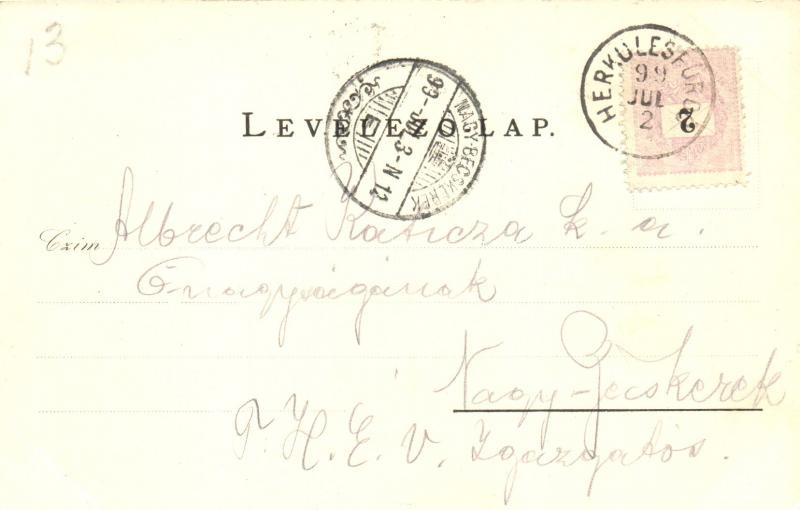 13
HERKULESFÜRDŐ
99
JUL
2
2
NAGY-BECSKEREK
99-JUL 3-N 12
LEVELEZŐ LAP.
Czim Albrecht Katicza k. a.
Őnagyságának
Nagy-Becskerek
T. H. É. V. Igazgatós.